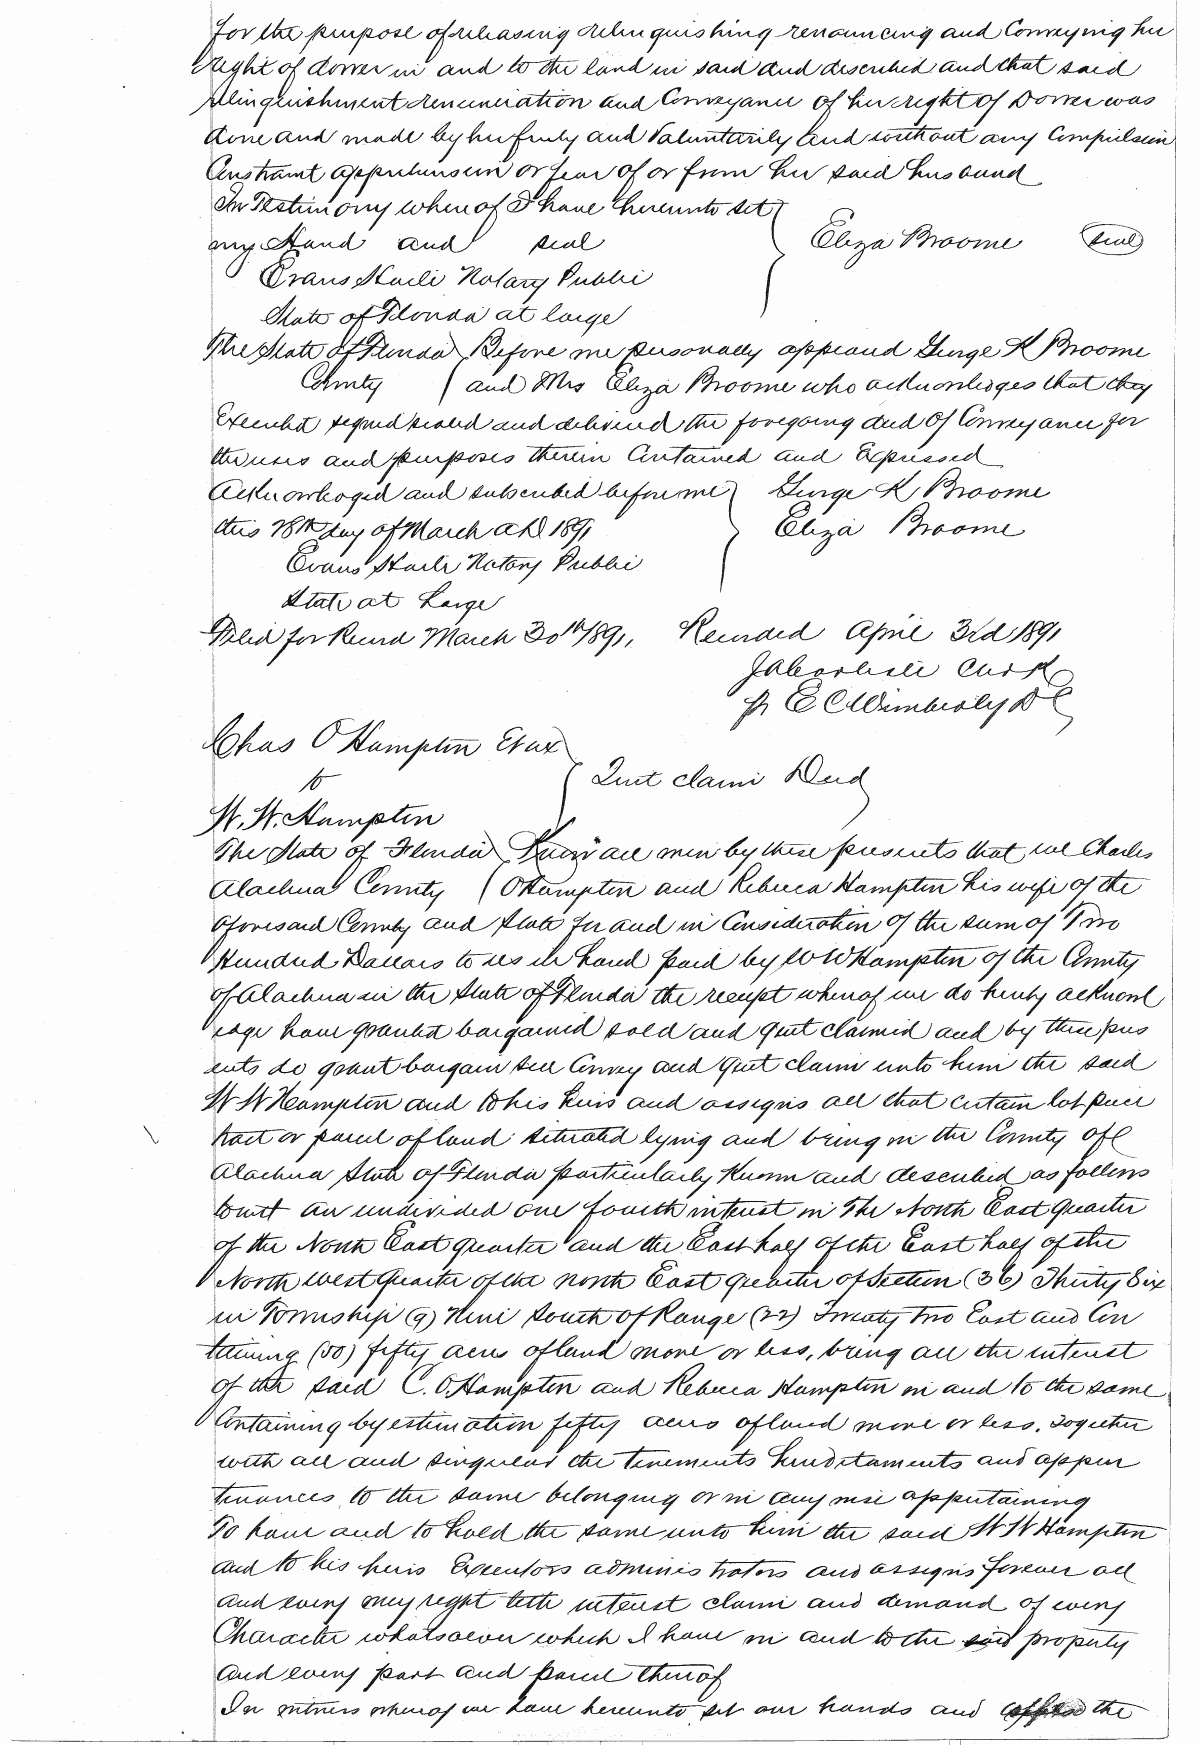 for the purpose of releasing relinquishing renouncing and Conveying her
right of dower in and to the land in said deed described and that said
relinquishment renunciation and Conveyance of her right of Dower was
done and made by her freely and Voluntarily and without any Compulsion
Constraint apprehension or fear of or from her said husband
In Testimony whereof I have hereunto set
my Hand and seal Eliza Broome seal
Evans Haile Notary Public
State of Florida at large
The State of Florida Before me personally appeared George K Broome
County and Mrs Eliza Broome who acknowledges that they
Executed signed sealed and delivered the foregoing deed Of Conveyance for
the uses and purposes therein Contained and Expressed
Acknowledged and subscribed before me George K Broome
this 28th day of March A.D. 1891 Eliza Broome
Evans Haile Notary Public
State at Large
Filed for Record March 30th 1891, Recorded April 3rd 1891
J A Carlisle Clerk
pr E C Wimberly D C
Chas O Hampton Et ux
to Quit claim Deed
W. W. Hampton
The State of Florida Know all men by these presents that we Charles
Alachua County O Hampton and Rebecca Hampton his wife of the
aforesaid County and State for and in Consideration of the sum of Two
Hundred Dollars to us in hand paid by W W Hampton of the County
of Alachua in the State of Florida the receipt whereof we do hereby acknowl
edge have granted bargained sold and quit claimed and by these pres
ents do grant bargain sell Convey and quit claim unto him the said
W W Hampton and to his heirs and assigns all that certain lot piece
tract or parcel of land situated lying and being in the County of
Alachua State of Florida particularly Known and described as follows
towit an undivided one fourth interest in The North East quarter
of the North East quarter and the East half of the East half of the
North West quarter of the North East quarter of Section (36) Thirty Six
in Township (9) Nine South of Range (22) Twenty Two East and Con
taining (50) fifty acres of land more or less, being all the interest
of the said C. O. Hampton and Rebecca Hampton in and to the same
Containing by estimation fifty acres of land more or less. Together
with all and singular the tenements hereditaments and appur
tenances to the same belonging or in any wise appertaining
To have and to hold the same unto him the said W W Hampton
and to his heirs Executors administrators and assigns forever all
and every my right title interest claim and demand of every
Character whatsoever which I have in and to the said property
and every part and parcel thereof
In witness whereof we have hereunto set our hands and the